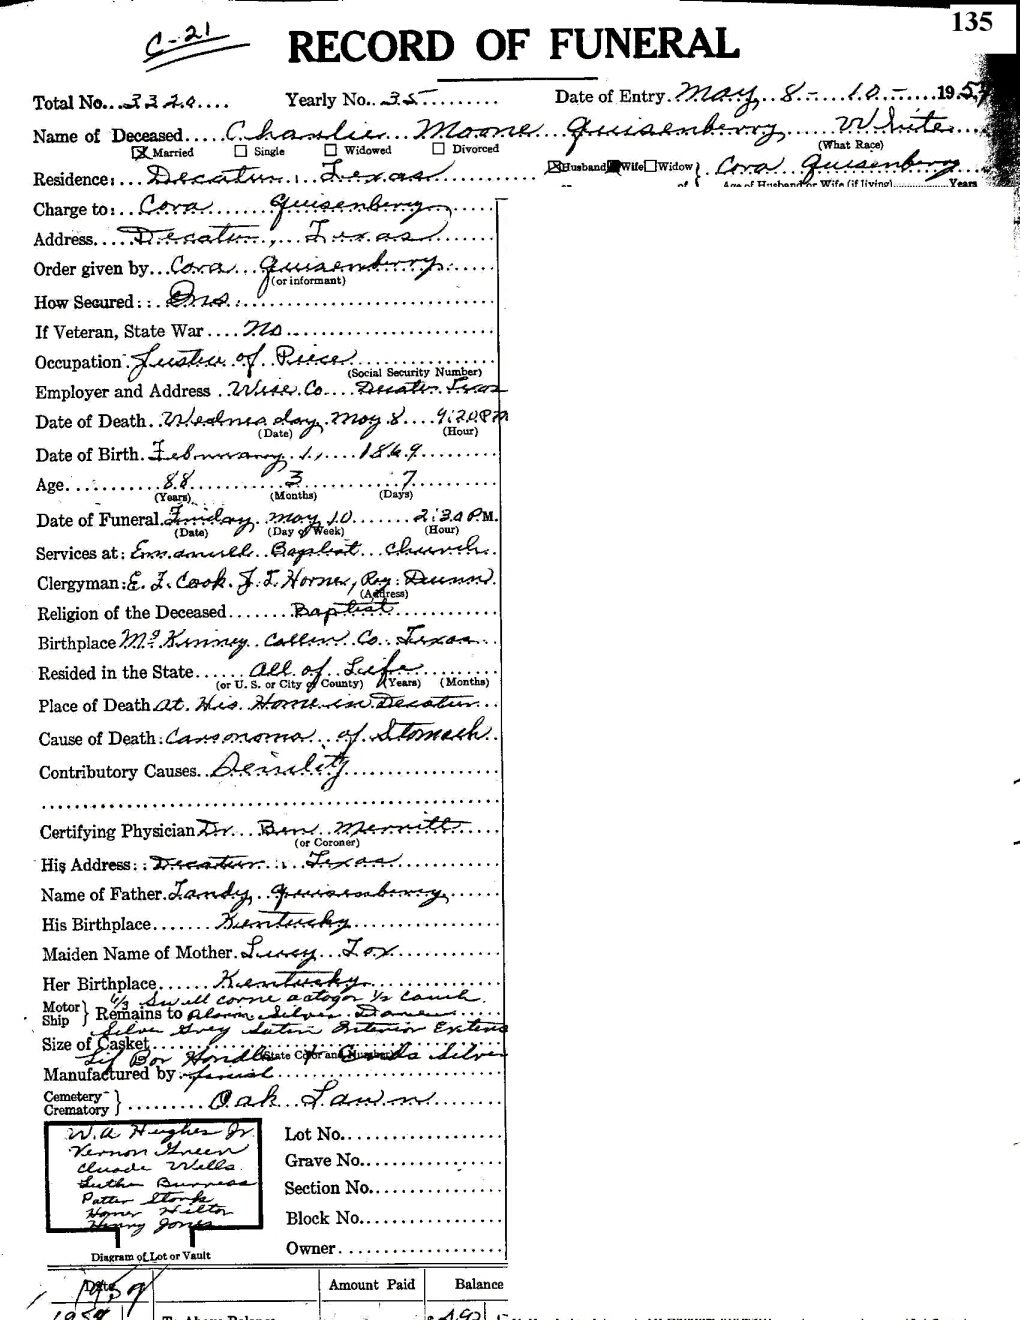 135
C-21
RECORD OF FUNERAL
Total No. 3320 Yearly No. 35 Date of Entry. May 8 - 10 - 1957
Name of Deceased Charlie Moone Quisenberry White
(What Race)
Married Single Widowed Divorced
Residence: Decatur, Texas Husband Wife Widow of Cora Quisenberry
Age of Husband or Wife (if living) Years
Charge to: Cora Quisenberry
Address Decatur, Texas
Order given by Cora Quisenberry
(or informant)
How Secured: Ons.
If Veteran, State War no
Occupation Justice of Piece
(Social Security Number)
Employer and Address Wise Co. Decatur Texas
Date of Death. Wednesday, May 8 9:20 PM
(Date) (Hour)
Date of Birth. February 1, 1869
Age 88 3 7
(Years) (Months) (Days)
Date of Funeral. Friday, May 10 2:30 PM.
(Date) (Day of Week) (Hour)
Services at: Emanuell Baptist Church
Clergyman: E. F. Cook. J. T. Horner, Roy Dunn
(Address)
Religion of the Deceased Baptist
Birthplace McKinney Collin Co. Texas
Resided in the State All of Life
(or U. S. or City of County) (Years) (Months)
Place of Death at His Home in Decatur
Cause of Death: Carsonoma of Stomach
Contributory Causes Seinlity
Certifying Physician Dr. Ben Merritt
(or Coroner)
His Address: Decatur, Texas
Name of Father. Tandy Quisenberry
His Birthplace Kentucky
Maiden Name of Mother. Lucy Fox
Her Birthplace Kentucky
6/3 Swell corne octogon 1/2 couch
Motor Ship } Remains to Silver
Silver Grey Satin Interior Extend
Size of Casket
(State Color and Number)
Bar Handles Silver
Manufactured by
Cemetery Crematory } Oak Lawn
W. A Hughes Jr.
Vernon Green
Cluade Wills
Luther Burress
Patter Stork
Homer Hilton
Henry Jones
Diagram of Lot or Vault
Lot No.
Grave No.
Section No.
Block No.
Owner
Date 1959 Amount Paid Balance
1959 To Above Balance